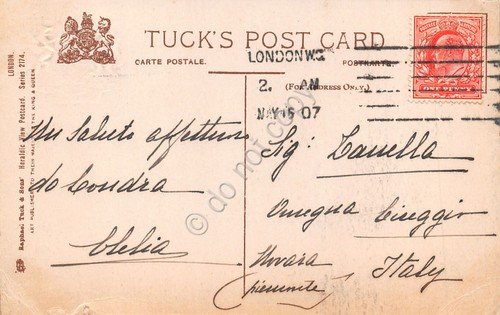 TUCK'S POST CARD
CARTE POSTALE.
POSTKARTE.
(FOR ADDRESS ONLY.)
LONDON W.
2. AM
MAY 15 07
ONE PENNY
LONDON.
Raphael Tuck & Sons' Heraldic View Postcard. Series 2174.
ART PUBLISHERS TO THEIR MAJESTIES THE KING & QUEEN.
Un Saluto affettuoso
da Londra
Clelia
Sig. Zanella
Omegna Cireggio
Novara
(piemonte)
Italy
do not copy